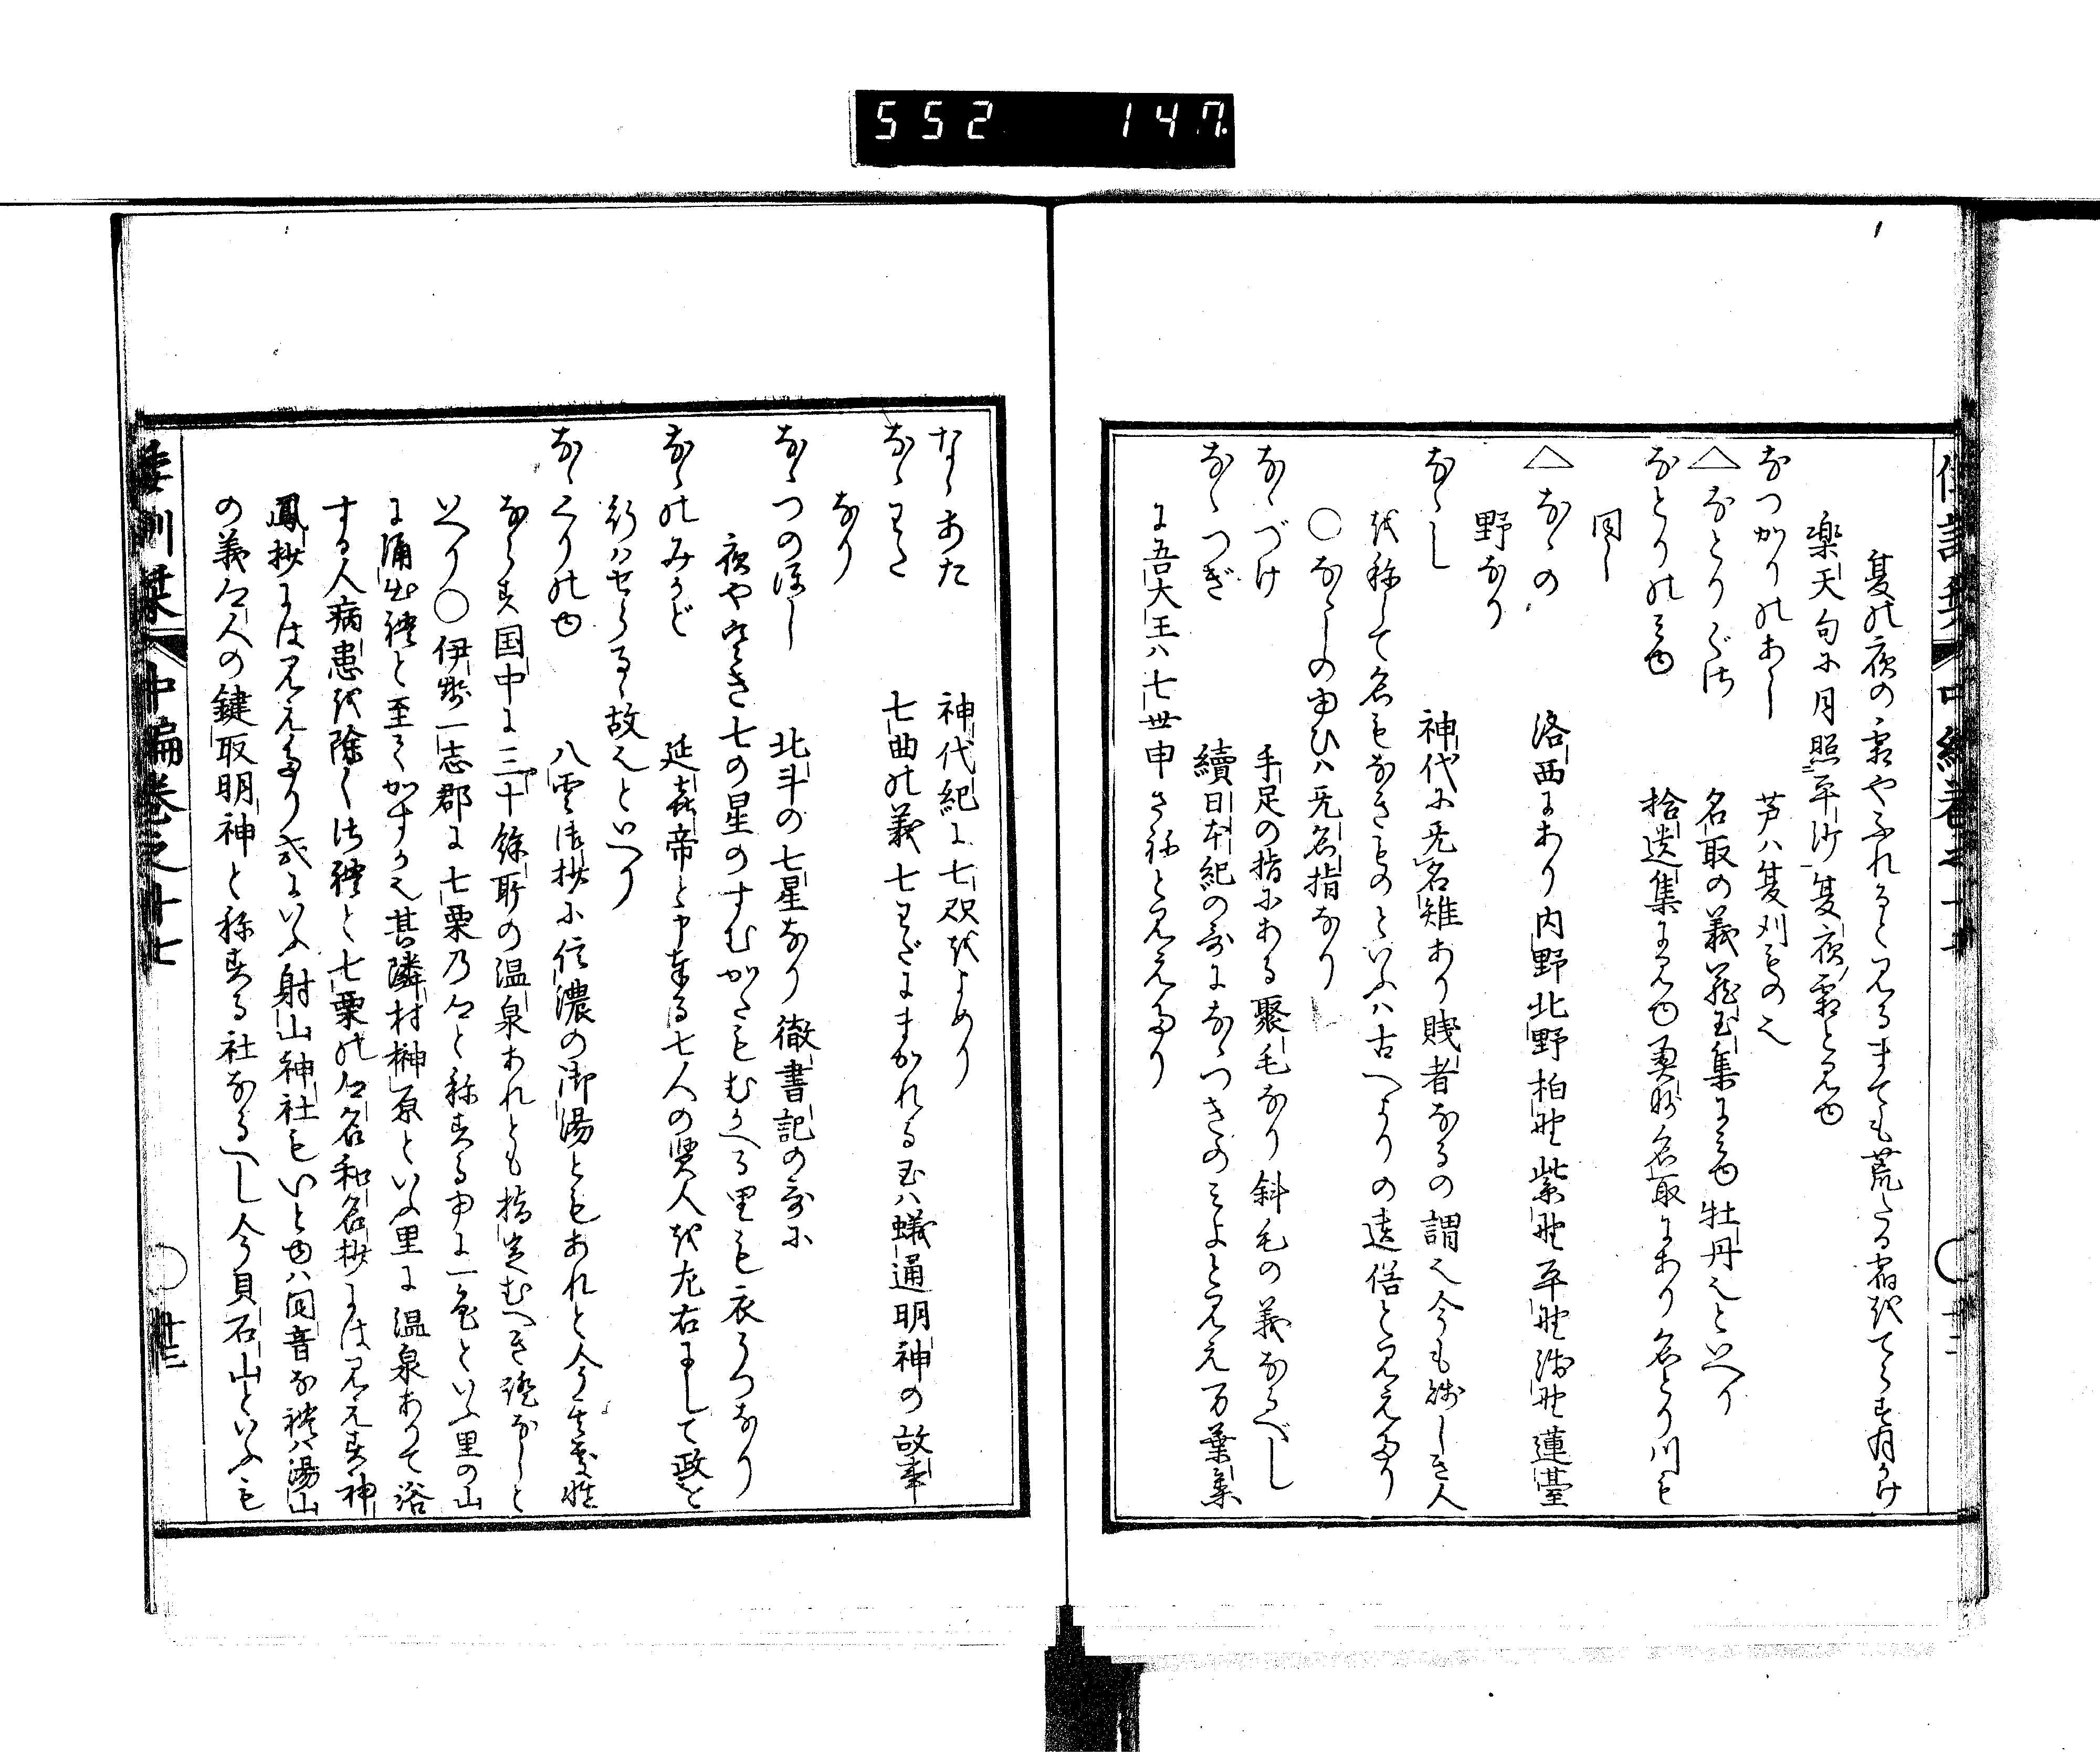 552 147
夏の夜の霜やふれると見るまても荒たる宿をてらす月かけ
楽天句に月照平沙夏夜霜と見ゆ
なつかりのあし 芦ハ夏刈もの也
△なとりぐさ 名取の義蔵玉集にみゆ牡丹也といへり
なとりのみゆ 拾遺集に見ゆ奥州名取にあり名とり川も
同し
△なゝの 洛西にあり内野北野柏野紫野平野 野蓮臺
野なり
なゝし 神代に无名雉あり賤者なるの謂也今も賤しき人
を称して名もなきものといふハ古へよりの遠俗と見えたり
○なゝしのゆひハ无名指なり
なゝづけ 手足の指にある聚毛なり斜毛の義なるべし
なゝつぎ 續日本紀の哥になゝつきのみよと見え万葉集
に吾大王ハ七世申さねと見えたり
倭訓栞 中編巻之十七
なゝあた 神代紀に七咫をよめり
なゝわた 七曲の義七わだにまかれる玉ハ蟻通明神の故事
なり
なゝつのほし 北斗の七星なり徹書記の哥に
夜や寒き七の星のすむかたもむかへる里も衣うつなり
なゝのみかど 延喜帝と申奉る七人の賢人を左右にして政を
行ハせらるゝ故也といへり
なゝくりのゆ 八雲御抄に信濃の御湯ともあれと今其處
ならす国中に三十餘所の温泉あれとも指定むへき證なしと
いへり○伊勢一志郡に七栗乃と称する中に一色といふ里の山
に涌出礼と至てかすか也其隣村榊原といふ里に温泉ありて浴
する人病患を除く 七栗の名和名抄には見えす神
鳳抄には見えたり或にいふ射山神社もいとゆハ同音なれハ湯山
の義 人の鍵取明神と称する社なるへし今貝石山といふも
廿三